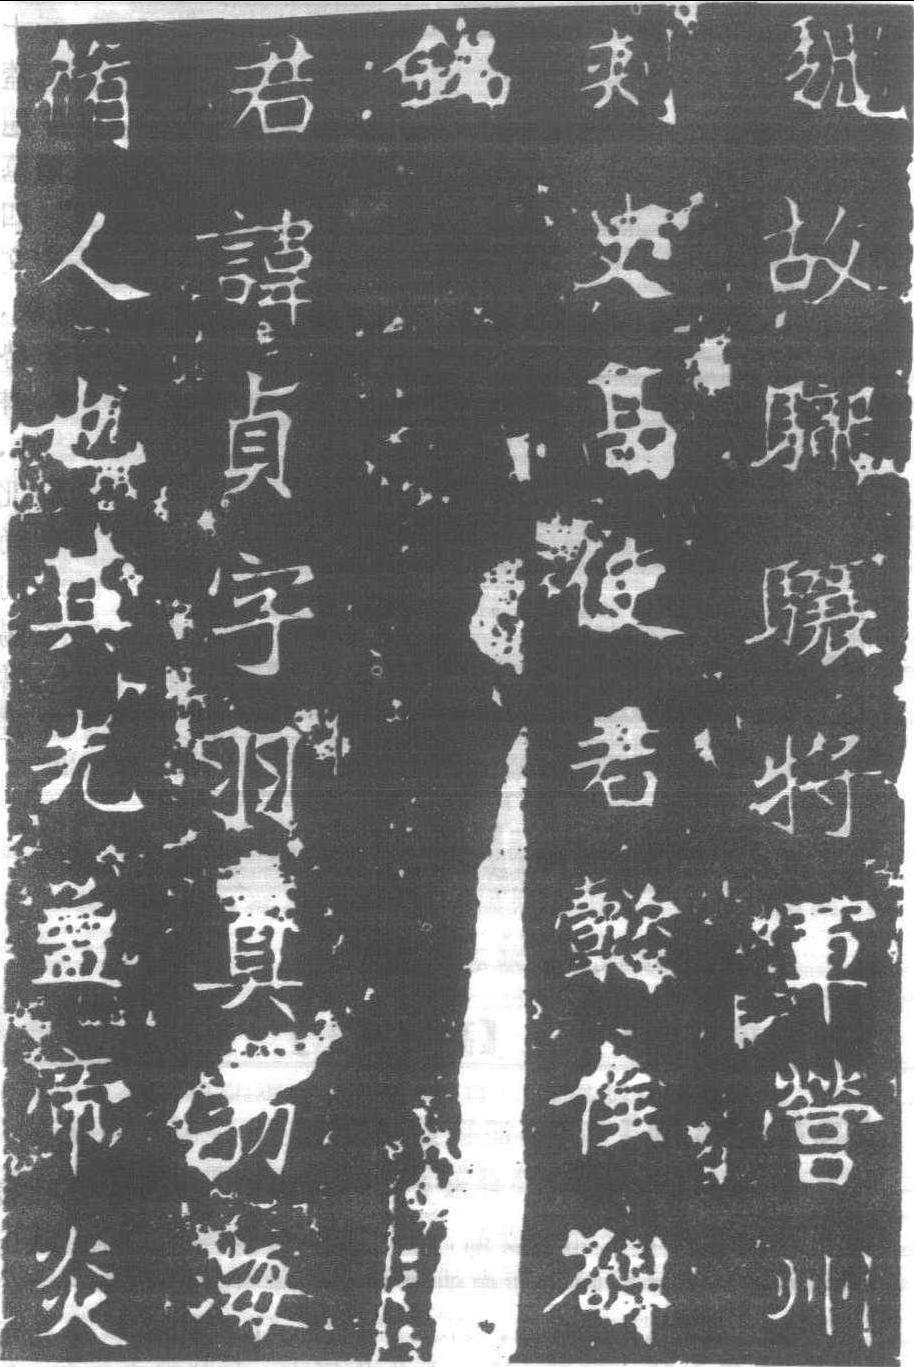 魏故驃驤將軍營州
刺史高使君懿侯碑
銘
君諱貞字羽真勃海
蓨人也其先蓋帝炎